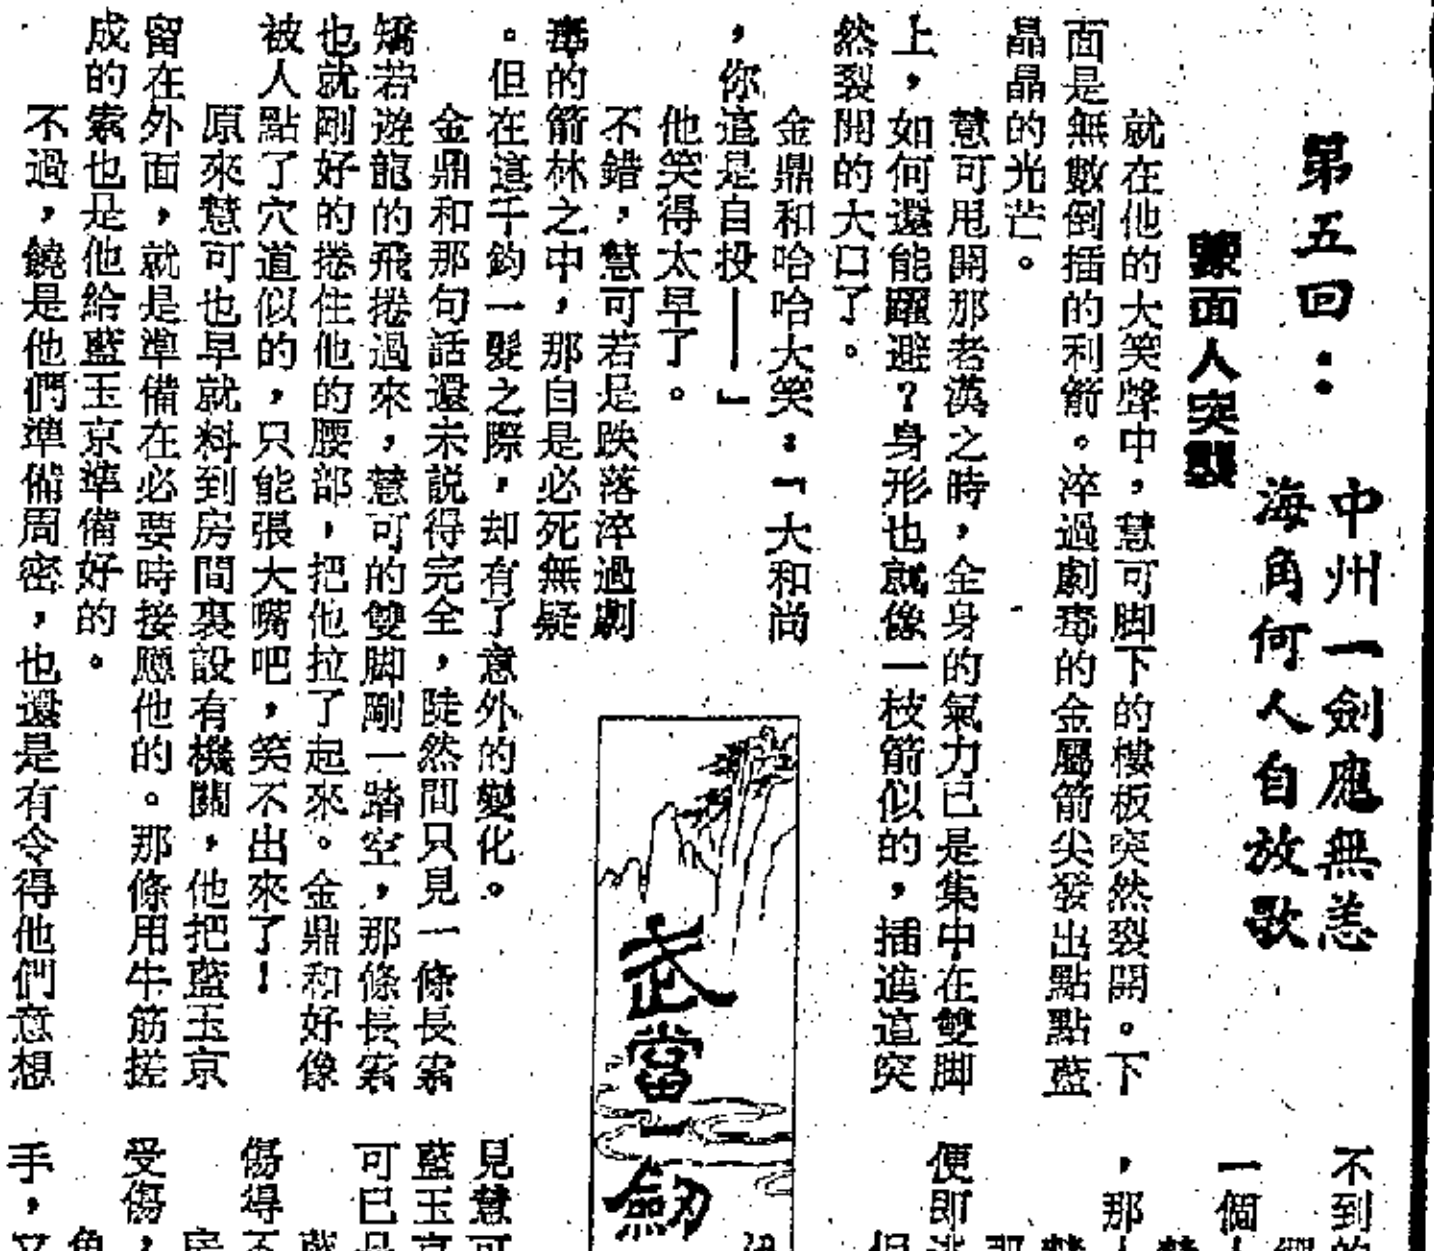 第五回：
中州一劍應無恙
海角何人自放歌
蒙面人突襲
就在他的大笑聲中，慧可脚下的樓板突然裂開。下
面是無數倒插的利箭。淬過劇毒的金屬箭尖發出點點藍
晶晶的光芒。
慧可甩開那老漢之時，全身的氣力已是集中在雙脚
上，如何還能躍避？身形也就像一枝箭似的，插進這突
然裂開的大口了。
金鼎和哈哈大笑：「大和尚
，你這是自投——」
他笑得太早了。
不錯，慧可若是跌落淬過劇
毒的箭林之中，那自是必死無疑
。但在這千鈞一髮之際，却有了意外的變化。
金鼎和那句話還未說得完全，陡然間只見一條長索
矯若遊龍的飛捲過來，慧可的雙脚剛一踏空，那條長索
也就剛好的捲住他的腰部，把他拉了起來。金鼎和好像
被人點了穴道似的，只能張大嘴吧，笑不出來了！
原來慧可也早就料到房間裏設有機關，他把藍玉京
留在外面，就是準備在必要時接應他的。那條用牛筋搓
成的索也是他給藍玉京準備好的。
不過，饒是他們準備周密，也還是有令得他們意想
武當一劍
不到的
一個
，那
便即逃
見慧可
藍玉京
可已是
傷得不
受傷，
手，又